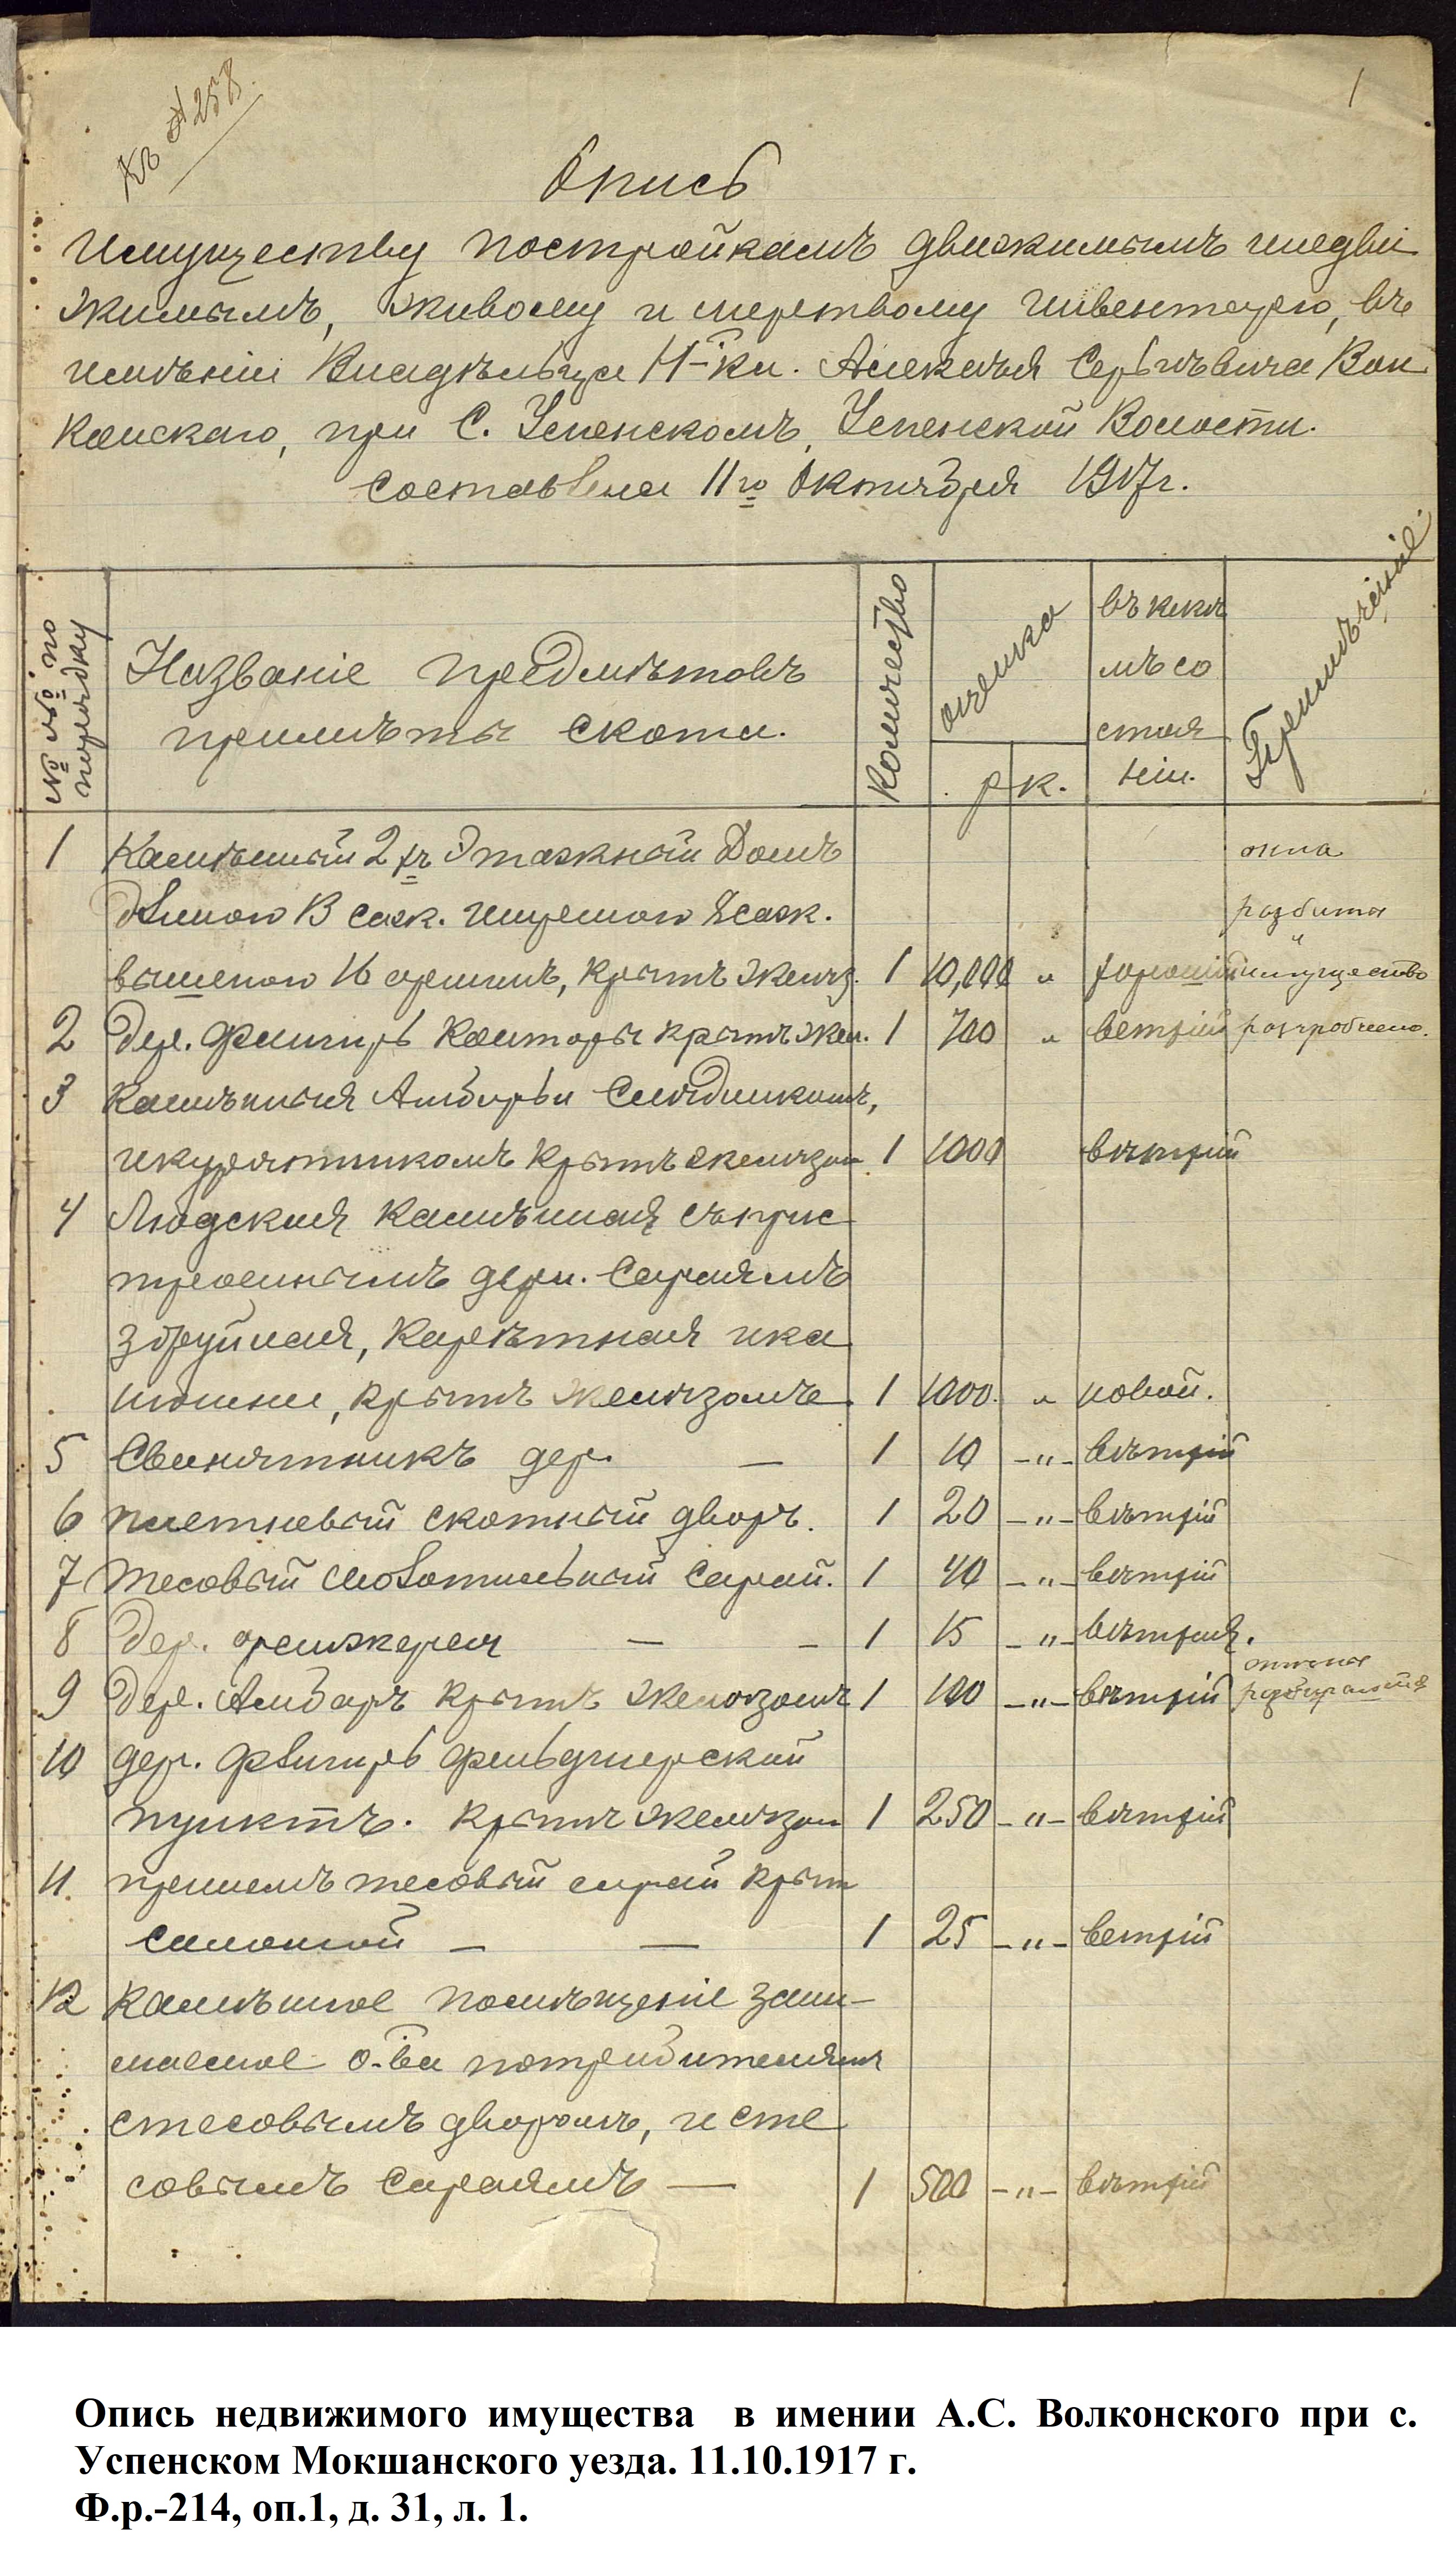 Къ № 258.
1
Опись
Имуществу постройкамъ движимымъ инедви
жимымъ, живому и мертвому инвентарю, въ
имѣніи Владѣльца Н-ки. Алексѣя Сергѣевича Вол
конскаго, при С. Успенскомъ, Успенской Волости.
Составлена 11го Октября 1917г.
№№ по порядку
Названіе предмѣтовъ
примѣты скота.
Количество
оценка
р к.
въ каком
мъ со
стоя
ніи.
Примѣчаніе.
1 Камѣнный 2хъ Этажный Домъ окна
длиною 13 саж. шириною 8 саж. разбиты
и
вышеною 16 аршинъ, крытъ желѣз. 1 10,000 " хорошій имущество
2 Дер. Флигирь Конторы крытъ жел. 1 700 " ветхій разгроблено.
3 Камѣнныя Амбарьи Слѣдникомъ,
икурятникомъ крытъ желѣзом 1 1000 вѣтхій
4 Людская Камѣнная съприс
троенным дерн. Сараямъ
збруйная, Карѣтная ика
нюшни, крытъ желѣзомъ. 1 1000. " новой.
5 Свинятникъ дер. — 1 10 -"- вѣтхій
6 плетневый скотный дворъ. 1 20 -"- вѣтхій
7 Тесовый Молотильный Сарай. 1 40 -"- вѣтхій
8 Дер. аренжерея — — 1 15 -"- вѣтхая.
9 Дер. Амбаръ крытъ желѣзомъ 1 100 -"- вѣтхій разбирается
10 дер. Флигирь фельдшерский
пунктъ. крытъ желѣзом 1 250 -"- вѣтхій
11. принемъ тесовый сарай крыт
Саломой — — 1 25 -"- ветхій
12 Камѣнное помѣщеніе зани-
маемое о-ва потребителямъ
стесовымъ дворомъ, и сте
совымъ Сараямъ — 1 500 -"- вѣтхій
Опись недвижимого имущества в имении А.С. Волконского при с.
Успенском Мокшанского уезда. 11.10.1917 г.
Ф.р.-214, оп.1, д. 31, л. 1.